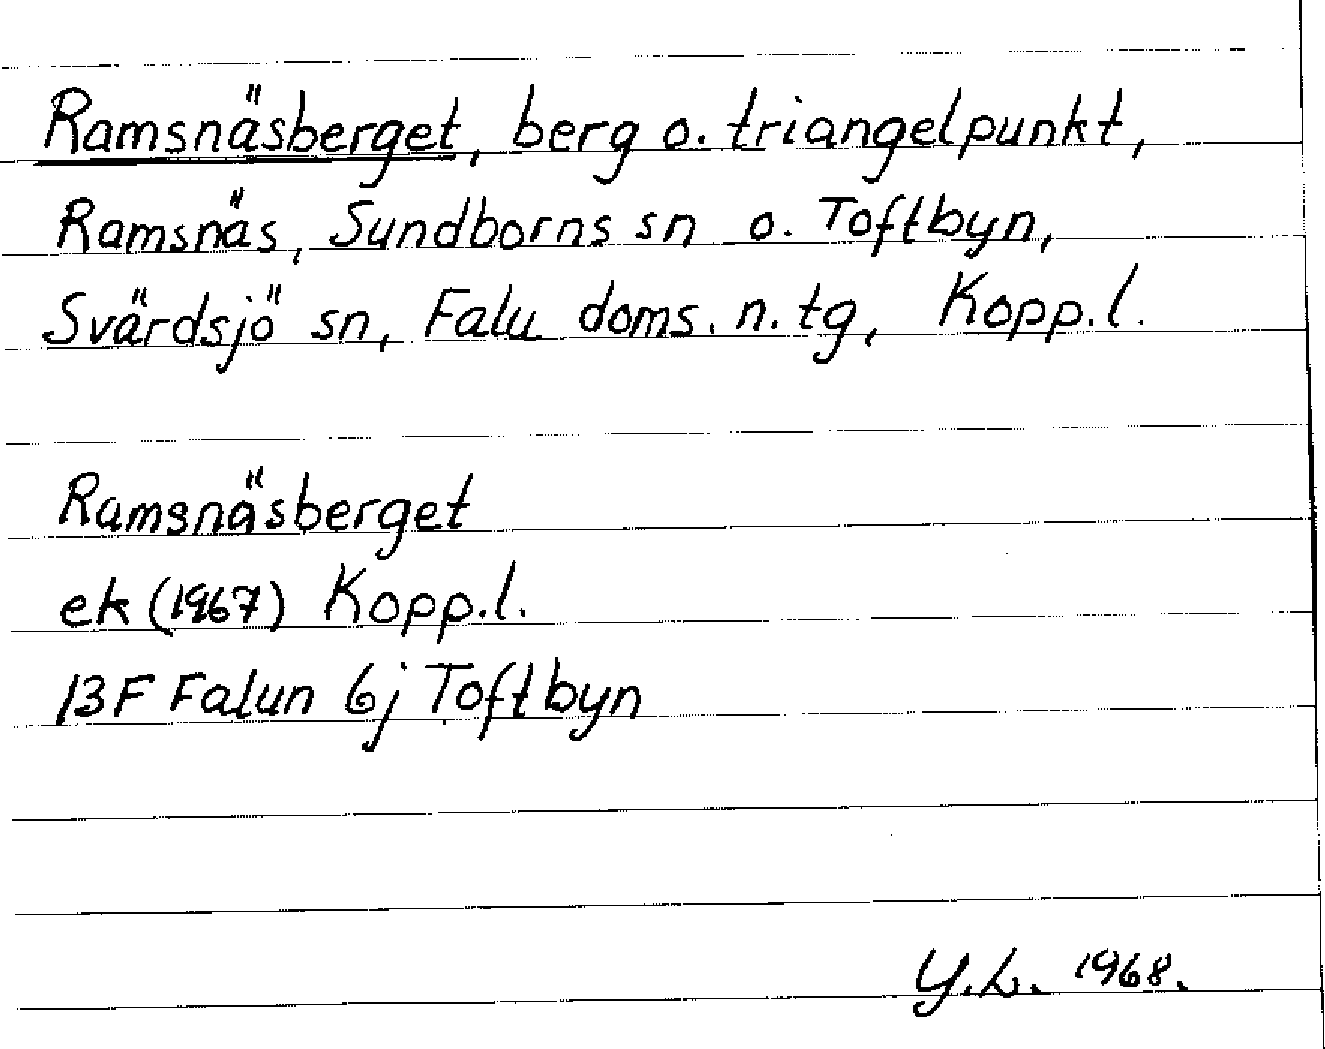 Ramsnäsberget, berg o. triangelpunkt,
Ramsnäs, Sundborns sn o. Toftbyn,
Svärdsjö sn, Falu doms. n. tg, Kopp.l.
Ramsnäsberget
ek (1967) Kopp.l.
13F Falun 6j Toftbyn
Y.L. 1968.